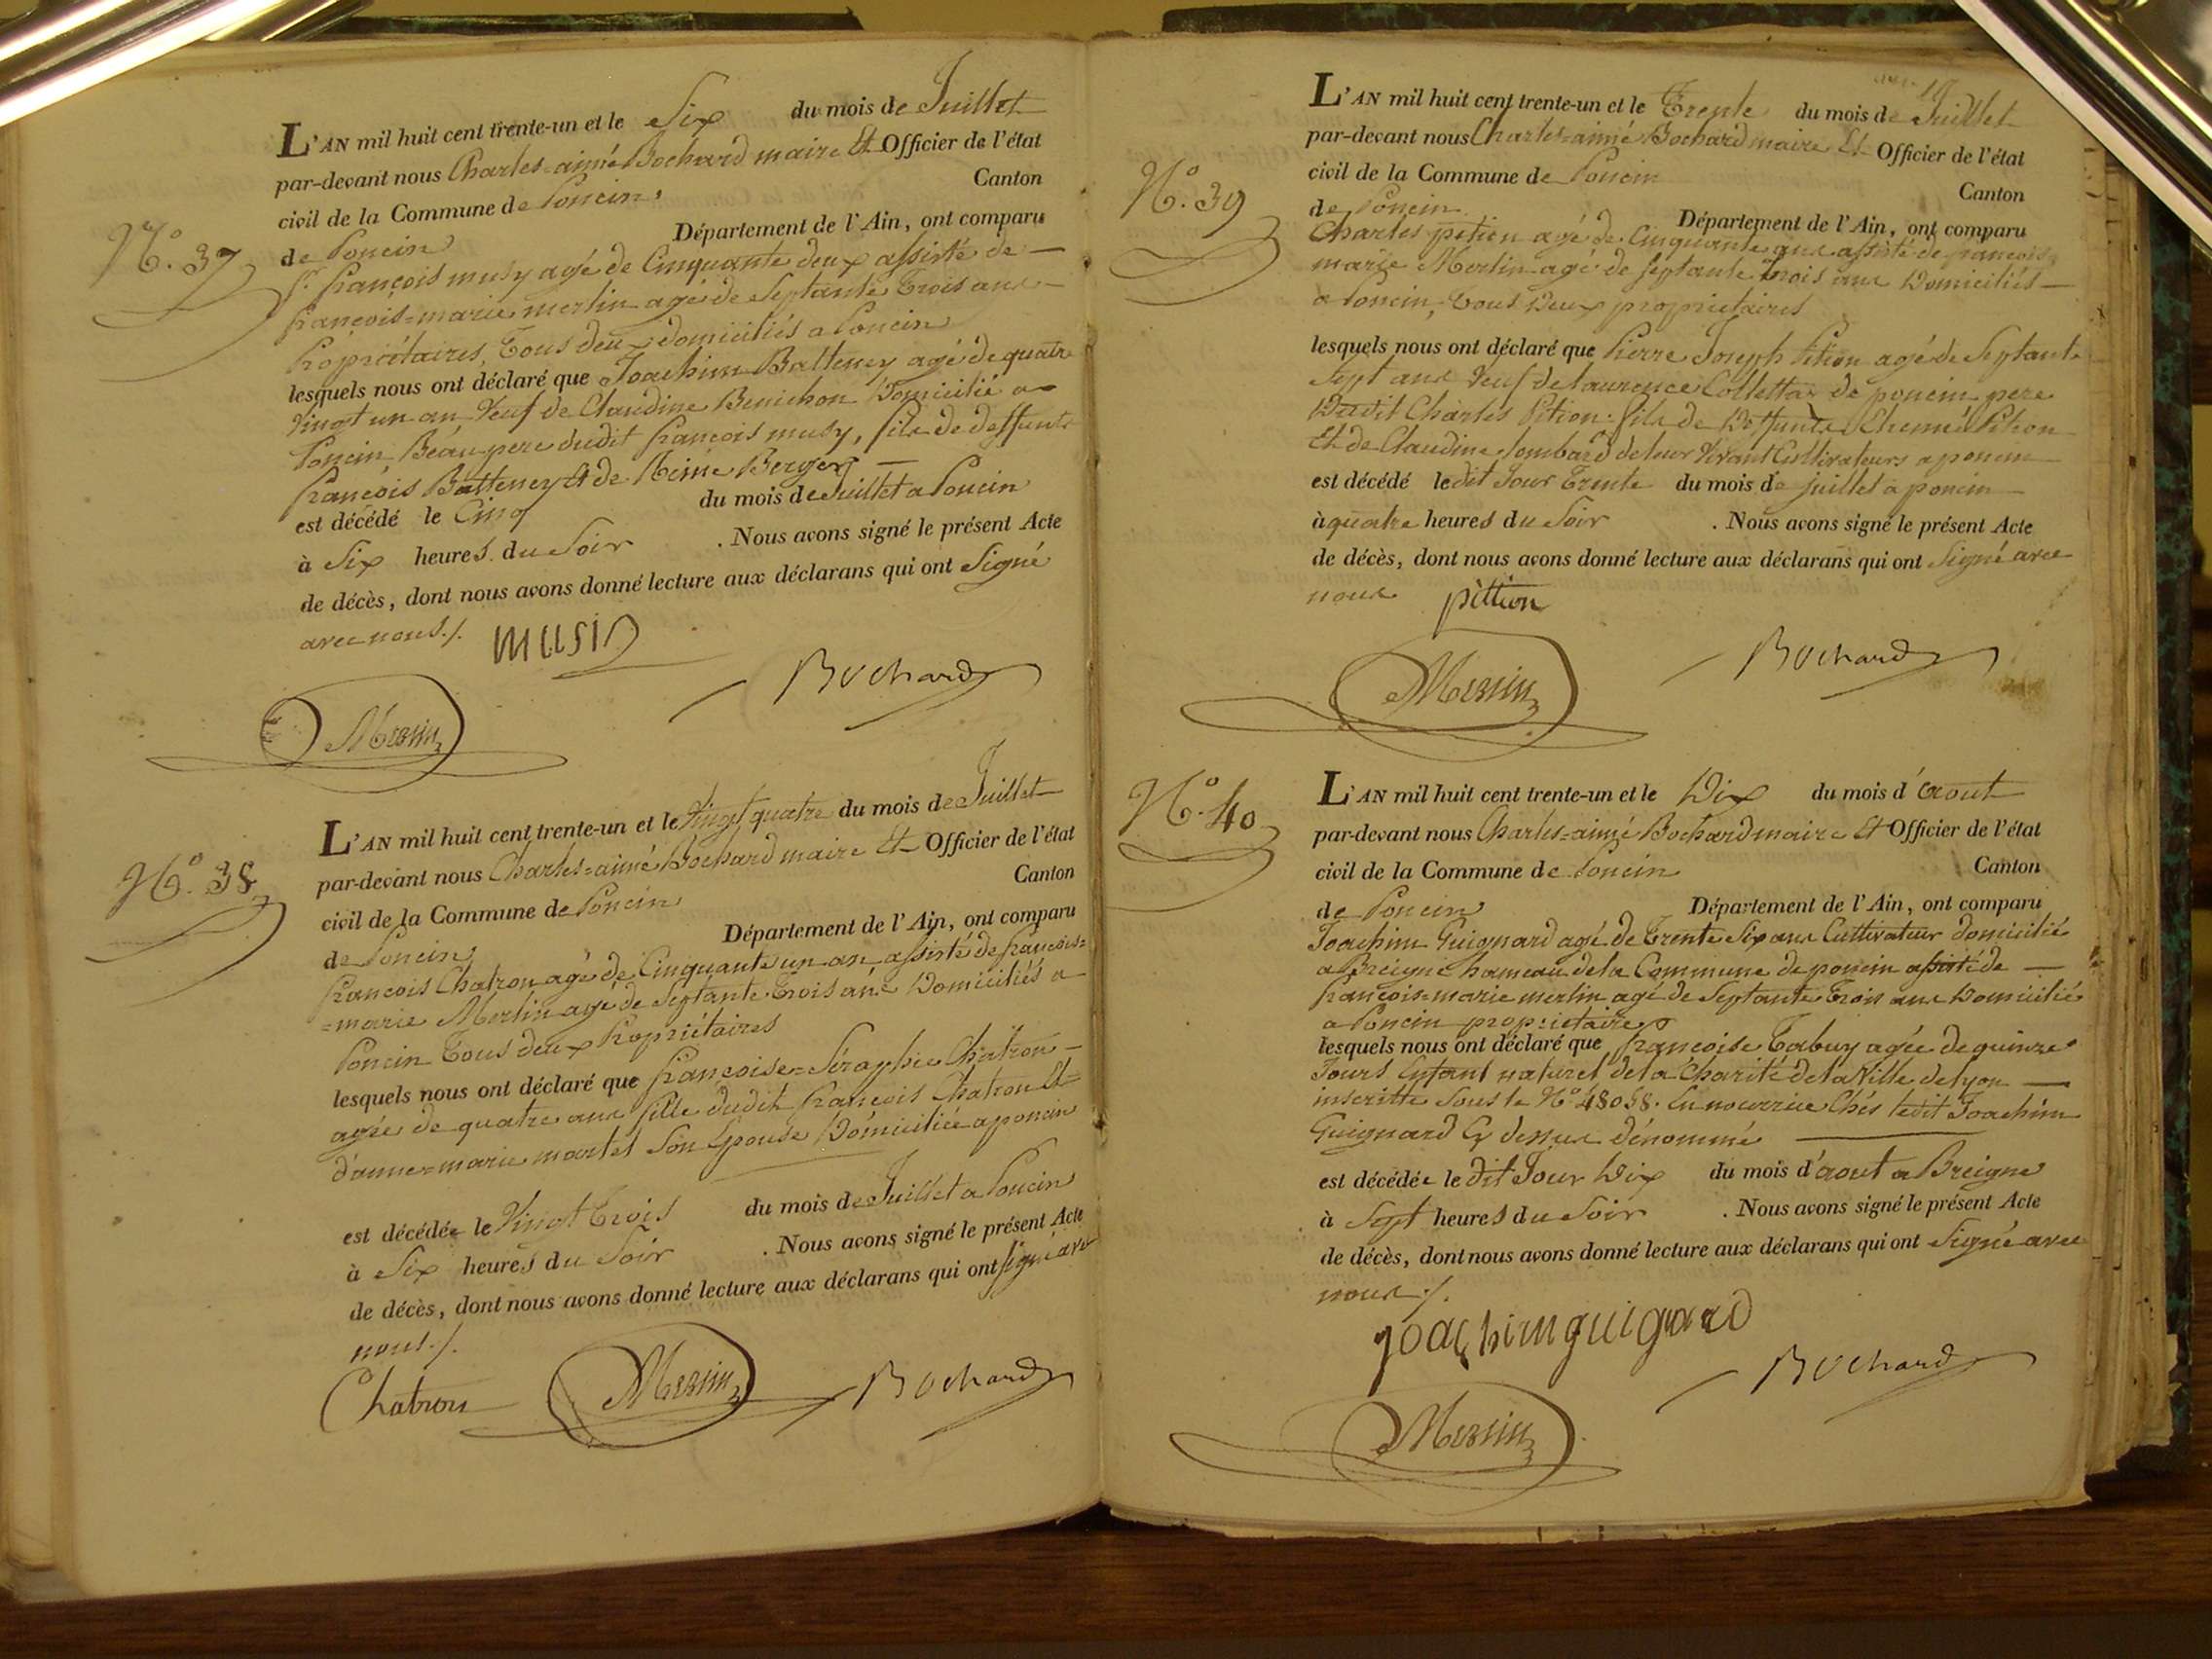 N.º 37
L'AN mil huit cent trente-un et le Six du mois de Juillet
par-devant nous Charles-aimé Bochard maire Et Officier de l'état
civil de la Commune de Poncin Canton
de Poncin Département de l'Ain, ont comparu
Sr. françois musy agé de Cinquante deux assisté de
françois=marie merlin agé de Septante Trois ans
Propriétaires, Tous deux domiciliés a Poncin
lesquels nous ont déclaré que Joachim Batteney agé de quatre
Vingt un an, Veuf de Claudine Benichon Domicilié a
Poncin Beau pere dudit françois musy, fils de deffunts
françois Batteney et de Reine Berger
est décédé le Cinq du mois de Juillet a Poncin
à Six heures du Soir . Nous avons signé le présent Acte
de décès, dont nous avons donné lecture aux déclarans qui ont Signé
avec nous ./.
musy
Bochard
Merlin
N.º 38
L'AN mil huit cent trente-un et le Vingt quatre du mois de Juillet
par-devant nous Charles=aimé Bochard maire Et Officier de l'état
civil de la Commune de Poncin Canton
de Poncin Département de l'Ain, ont comparu
françois Chatron agé de Cinquante un an assisté de françois=
=marie Merlin agé de Septante Trois ans Domiciliés a
Poncin Tous deux Propriétaires
lesquels nous ont déclaré que françoise=Séraphie Chatron
agée de quatre ans fille dudit françois Chatron Et
d'anne=marie martel Son Epouse Domiciliée a poncin
est décédée le Vingt Trois du mois de Juillet a Poncin
à Six heures du Soir . Nous avons signé le présent Acte
de décès, dont nous avons donné lecture aux déclarans qui ont signé avec
nous ./.
Chatron Merlin Bochard
N.º 39
L'AN mil huit cent trente-un et le Trente du mois de Juillet
par-devant nous Charles=aimé Bochard maire Et Officier de l'état
civil de la Commune de Poncin Canton
de Poncin Département de l'Ain, ont comparu
Charles pition agé de Cinquante ans assisté de françois=
marie Merlin agé de septante Trois ans Domiciliés
a Poncin, Tous Deux proprietaires
lesquels nous ont déclaré que Pierre Joseph Pition agé de Septante
Sept ans Veuf de Laurence Collettaz de poncin pere
Dudit Charles Pition: fils de Deffunts Pition
Et de Claudine Lombard de leur Vivant Cultivateurs a poncin
est décédé ledit Jour Trente du mois de juillet a poncin
à quatre heures du Soir . Nous avons signé le présent Acte
de décès, dont nous avons donné lecture aux déclarans qui ont Signé avec
nous pittion
Bochard
Merlin
N.º 40
L'AN mil huit cent trente-un et le Dix du mois d'aout
par-devant nous Charles=aimé Bochard maire Et Officier de l'état
civil de la Commune de Poncin Canton
de Poncin Département de l'Ain, ont comparu
Joachim Guignard agé de Trente Six ans Cultivateur domicilié
a Breigne hameau de la Commune de poncin assisté de
françois=marie merlin agé de Septante Trois ans Domicilié
a Poncin proprietaire
lesquels nous ont déclaré que françoise Tabuy agée de quinze
Jours Enfant naturel de la Charité de la Ville de lyon
inscritte Sous le Nº 48058. En nourrice Chés ledit Joachim
Guignard Cy dessus dénommé
est décédée le dit Jour Dix du mois d'aout a Breigne
à Sept heures du Soir . Nous avons signé le présent Acte
de décès, dont nous avons donné lecture aux déclarans qui ont Signé avec
nous ./.
joachim guignard
Bochard
Merlin